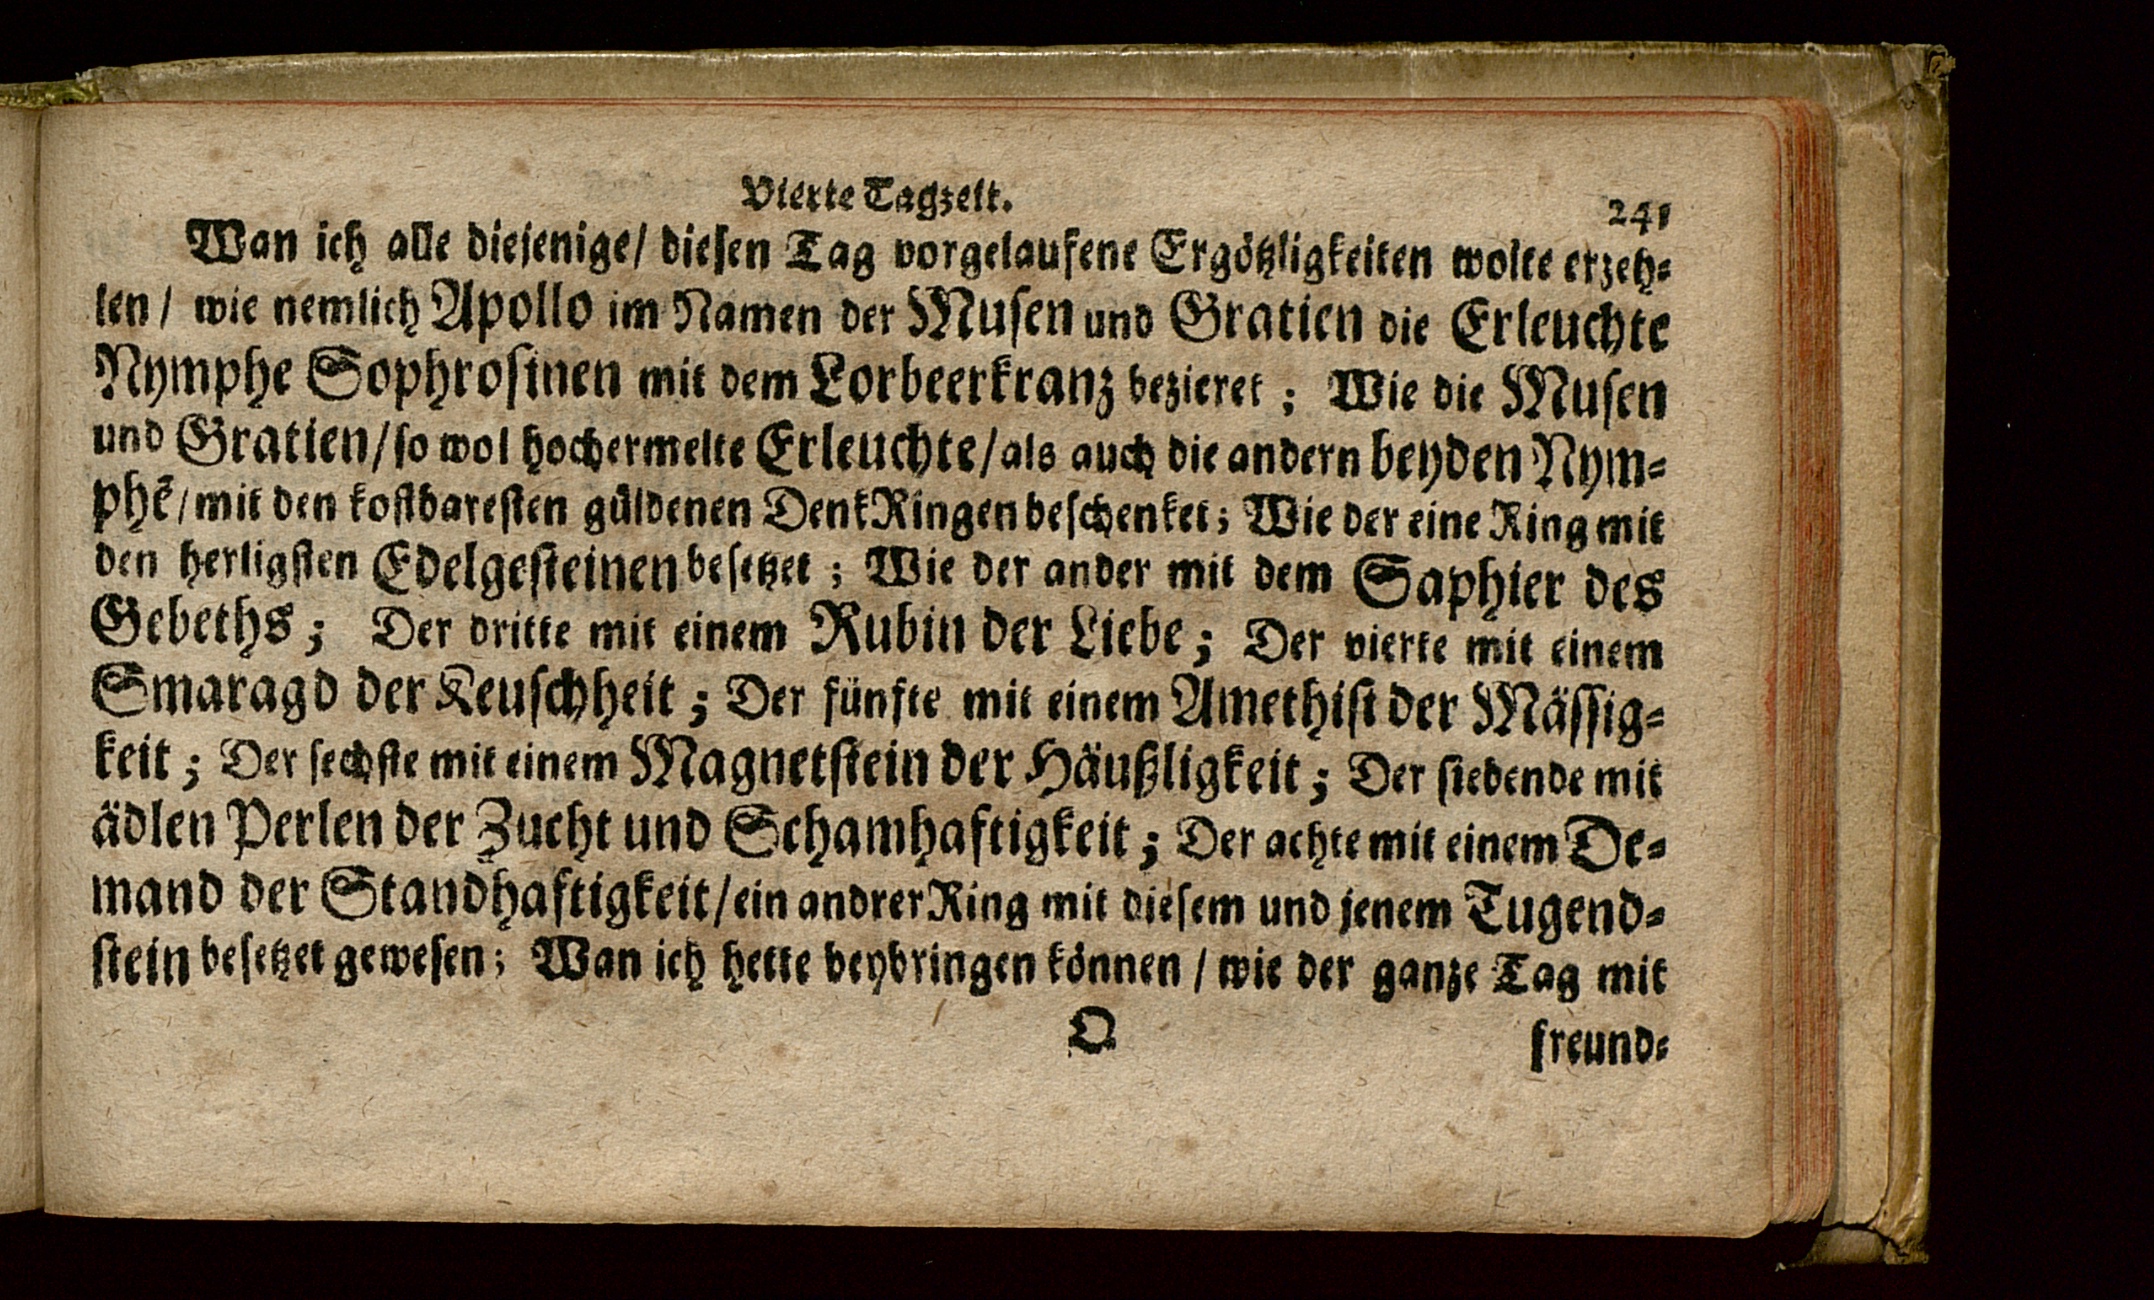 Vierte Tagzeit.
241
Wan ich alle diejenige/ diesen Tag vorgelaufene Ergötzligkeiten wolte erzeh⸗
len/ wie nemlich Apollo im Namen der Musen und Gratien die Erleuchte
Nymphe Sophrosinen mit dem Lorbeerkranz bezieret; Wie die Musen
und Gratien/ so wol hochermelte Erleuchte/ als auch die andern beyden Nym⸗
phẽ/ mit den kostbaresten güldenen DenkRingen beschenket; Wie der eine Ring mit
den herligsten Edelgesteinen besetzet; Wie der ander mit dem Saphier des
Gebeths; Der dritte mit einem Rubin der Liebe; Der vierte mit einem
Smaragd der Keuschheit; Der fünfte mit einem Amethist der Mässig⸗
keit; Der sechste mit einem Magnetstein der Häußligkeit; Der siebende mit
ädlen Perlen der Zucht und Schamhaftigkeit; Der achte mit einem De⸗
mand der Standhaftigkeit/ ein andrer Ring mit diesem und jenem Tugend⸗
stein besetzet gewesen; Wan ich hette beybringen können/ wie der ganze Tag mit
Q freund⸗